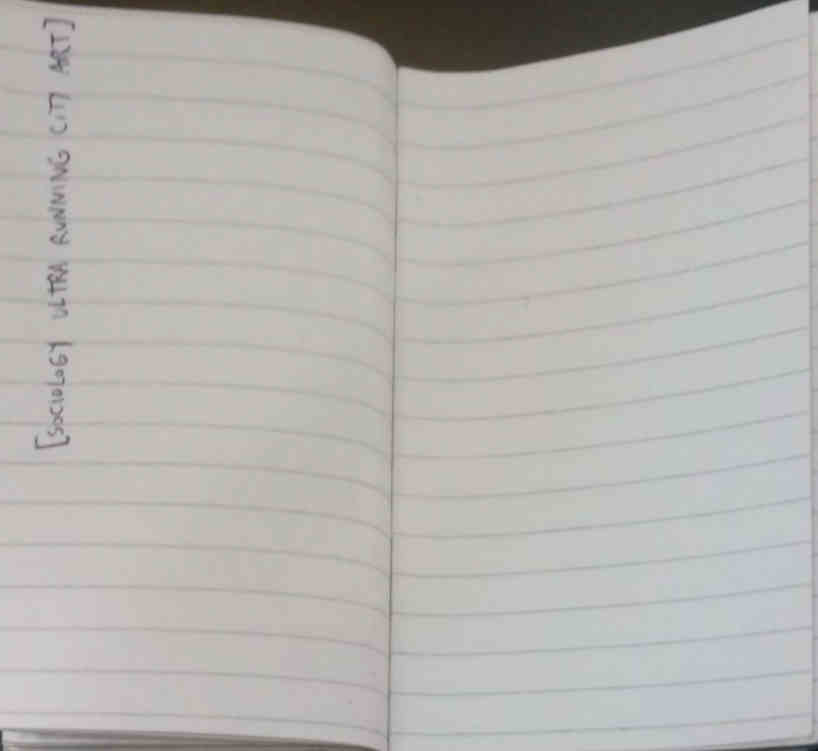 [SOCIOLOGY ULTRA RUNNING CITY ART]